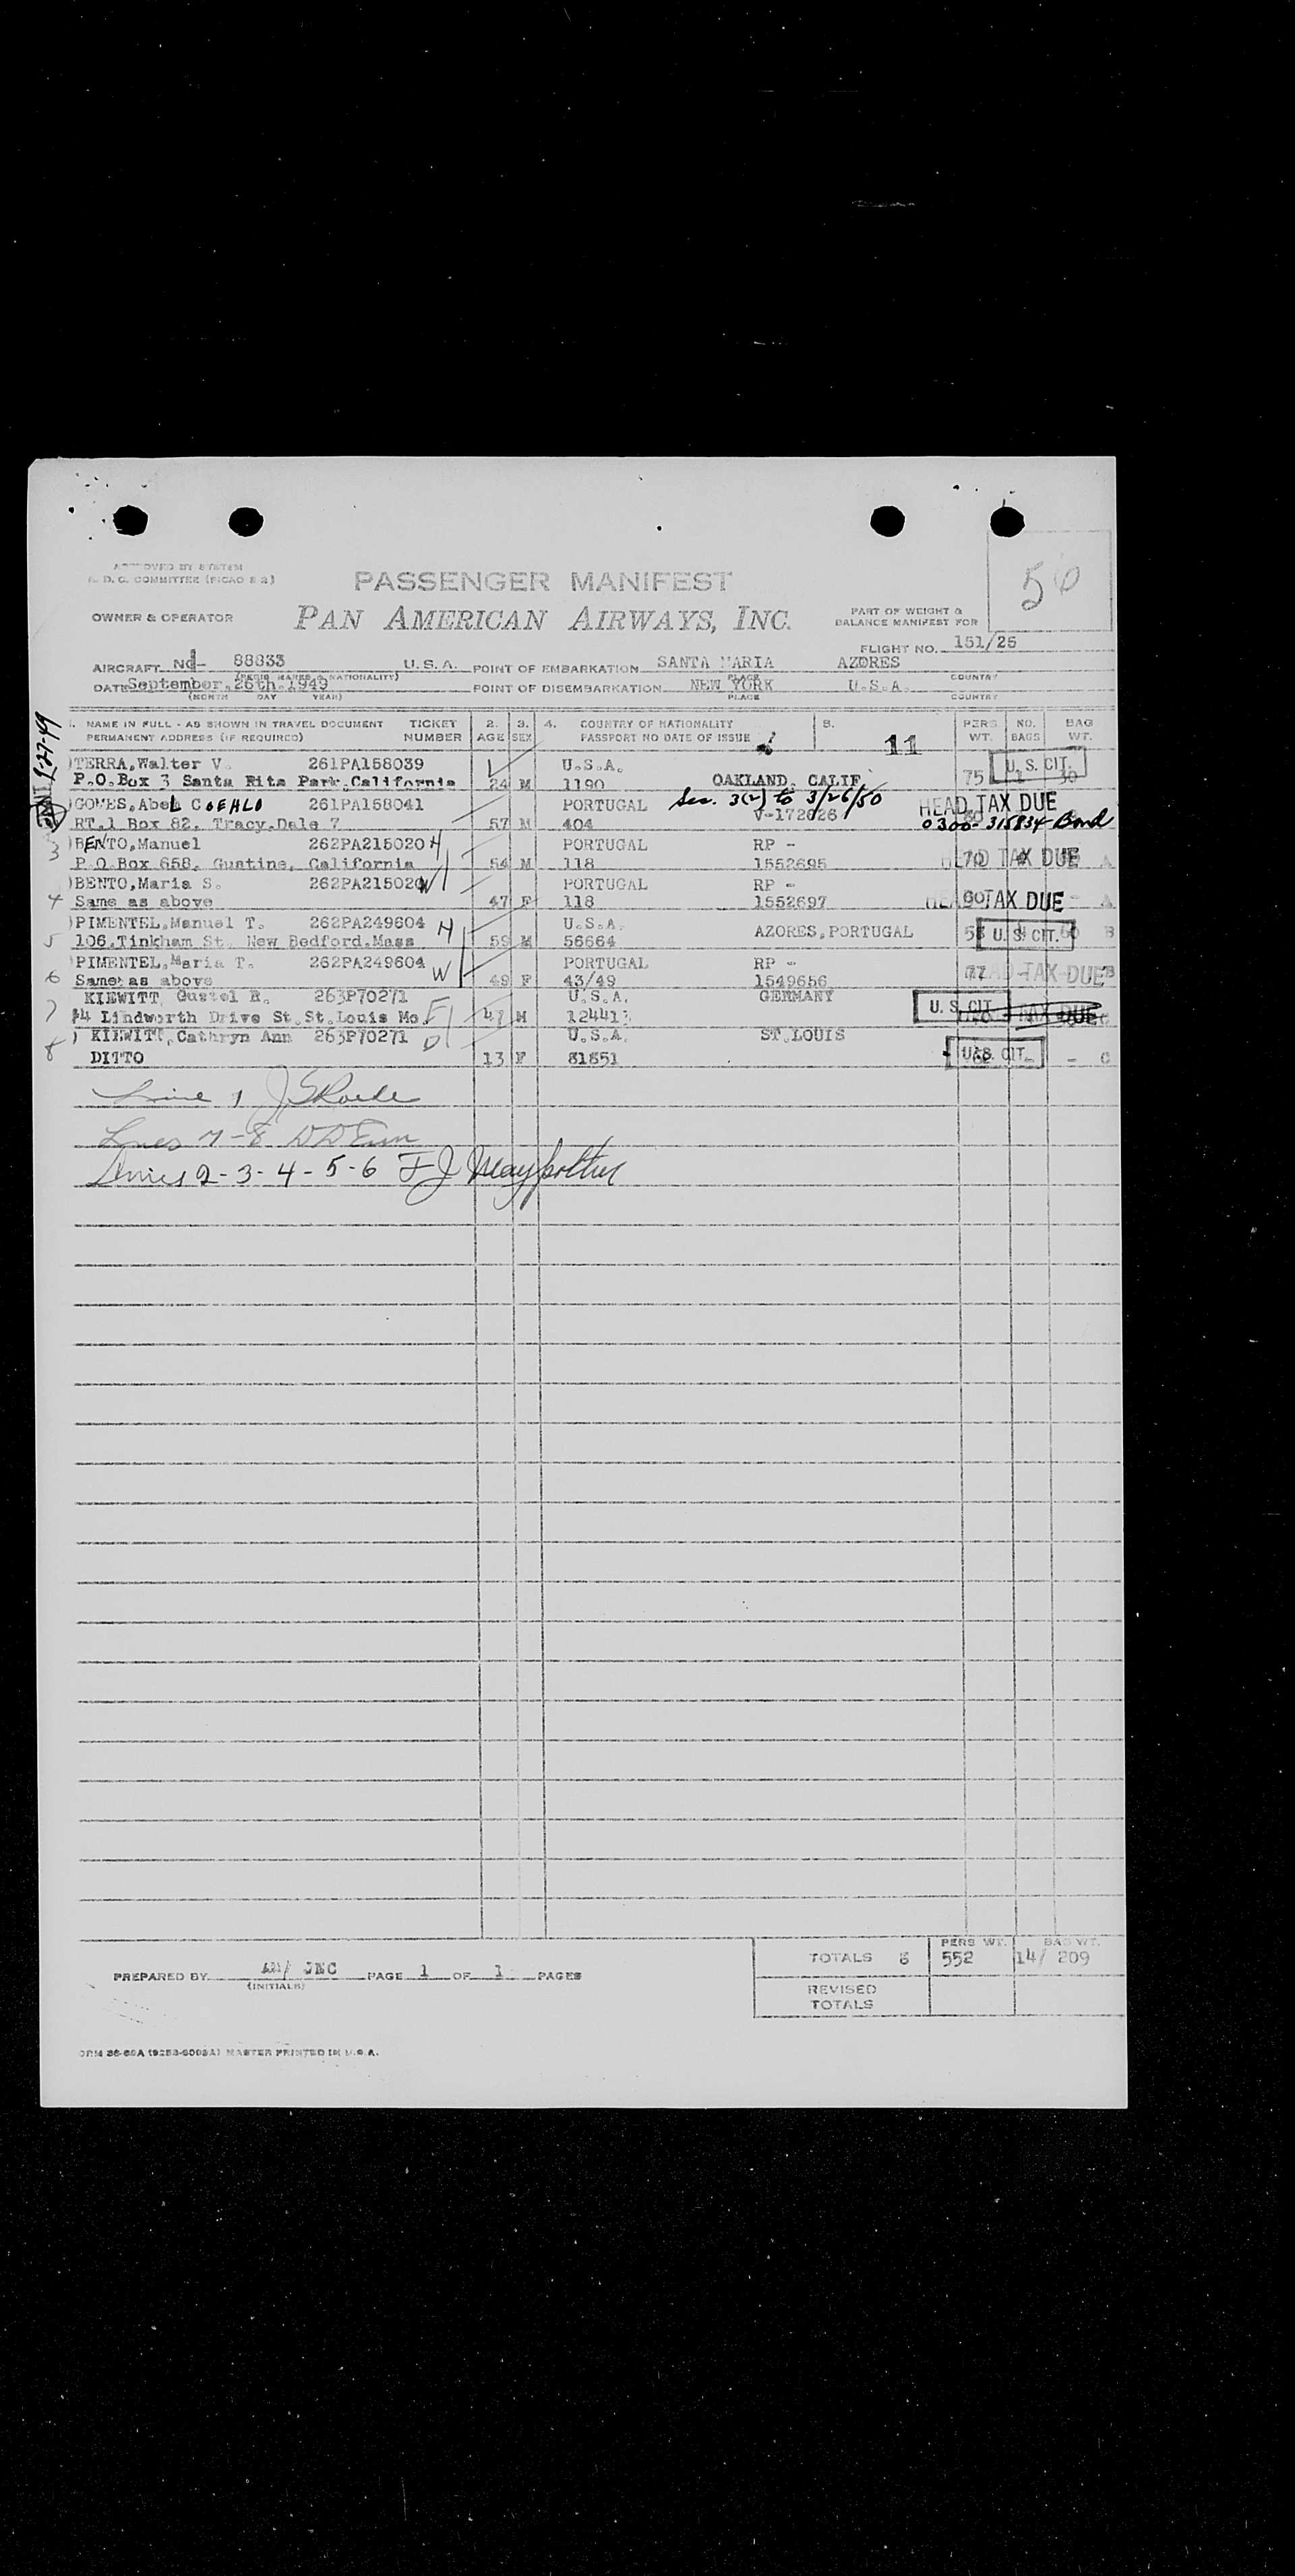 APPROVED BY SYSTEM
A. D. C. COMMITTEE (PICAO 8 2)
PASSENGER MANIFEST
50
OWNER & OPERATOR PAN AMERICAN AIRWAYS, INC.
PART OF WEIGHT &
BALANCE MANIFEST FOR
FLIGHT NO. 151/25
AIRCRAFT 88833 U.S.A. POINT OF EMBARKATION SANTA MARIA AZORES
(REGIS. MARKS & NATIONALITY) PLACE COUNTRY
DATE September.26th.1949 POINT OF DISEMBARKATION NEW YORK U.S.A.
(MONTH DAY YEAR) PLACE COUNTRY
1. NAME IN FULL - AS SHOWN IN TRAVEL DOCUMENT TICKET 2. 3. 4. COUNTRY OF NATIONALITY PERS NO. BAG
PERMANENT ADDRESS (IF REQUIRED) NUMBER AGE SEX PASSPORT NO DATE OF ISSUE 11 WT. BAGS WT.
TERRA,Walter V. 261PA158039 U.S.A. U. S. CIT.
P.O.Box 3 Santa Rita Park.California 24 M 1190 OAKLAND, CALIF. 75 1 30
GOMES,Abel COEHLO 261PA158041 PORTUGAL Sec. 3(2) to 3/26/50 HEAD TAX DUE
RT.1 Box 82, Tracy.Dale 7 57 M 404 V-172626 0300-315834 Bond
3 BENTO,Manuel 262PA215020 H PORTUGAL RP -
P.O.Box 658, Gustine, California 54 M 118 1552695 70 HEAD TAX DUE A
BENTO,Maria S. 262PA215020 W PORTUGAL RP -
4 Same as above 47 F 118 1552697 HEAD TAX DUE - A
PIMENTEL,Manuel T. 262PA249604 H U.S.A. AZORES,PORTUGAL
5 106,Tinkham St. New Bedford.Mass 59 M 56664 U. S. CIT. B
PIMENTEL,Maria T. 262PA249604 W PORTUGAL RP -
6 Same as above 49 F 43/49 1549656 77 HEAD TAX DUE B
KIEWITT, Gustel R. 263P70271 U.S.A. GERMANY
7 #4 Lindworth Drive St.St.Louis Mo. F 47 M U. S. CIT. TAX DUE C
KIEWITT,Cathryn Ann 263P70271 D U.S.A. ST.LOUIS
8 DITTO 13 F 81851 U. S. CIT. - C
Line 1
Lines 7-8
Lines 2-3-4-5-6 FJ
TOTALS 8 PERS WT. 552 BAG WT. 14/ 209
PREPARED BY PAGE 1 OF 1 PAGES
(INITIALS)
REVISED
TOTALS
MASTER PRINTED IN U.S.A.